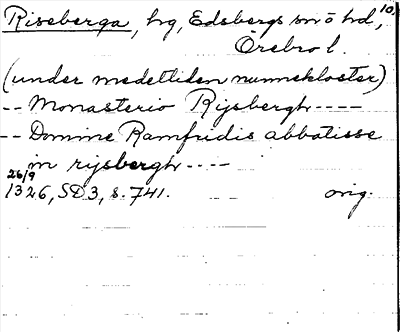 Riseberga, hg, Edsbergs sn o hd, 10
Örebro l.
(under medeltiden nunnekloster)
-- Monasterio Rysbergh ----
-- Domine Ramfridis abbatisse
in rysbergh ----
26/9
1326, SD 3, s. 741. orig.